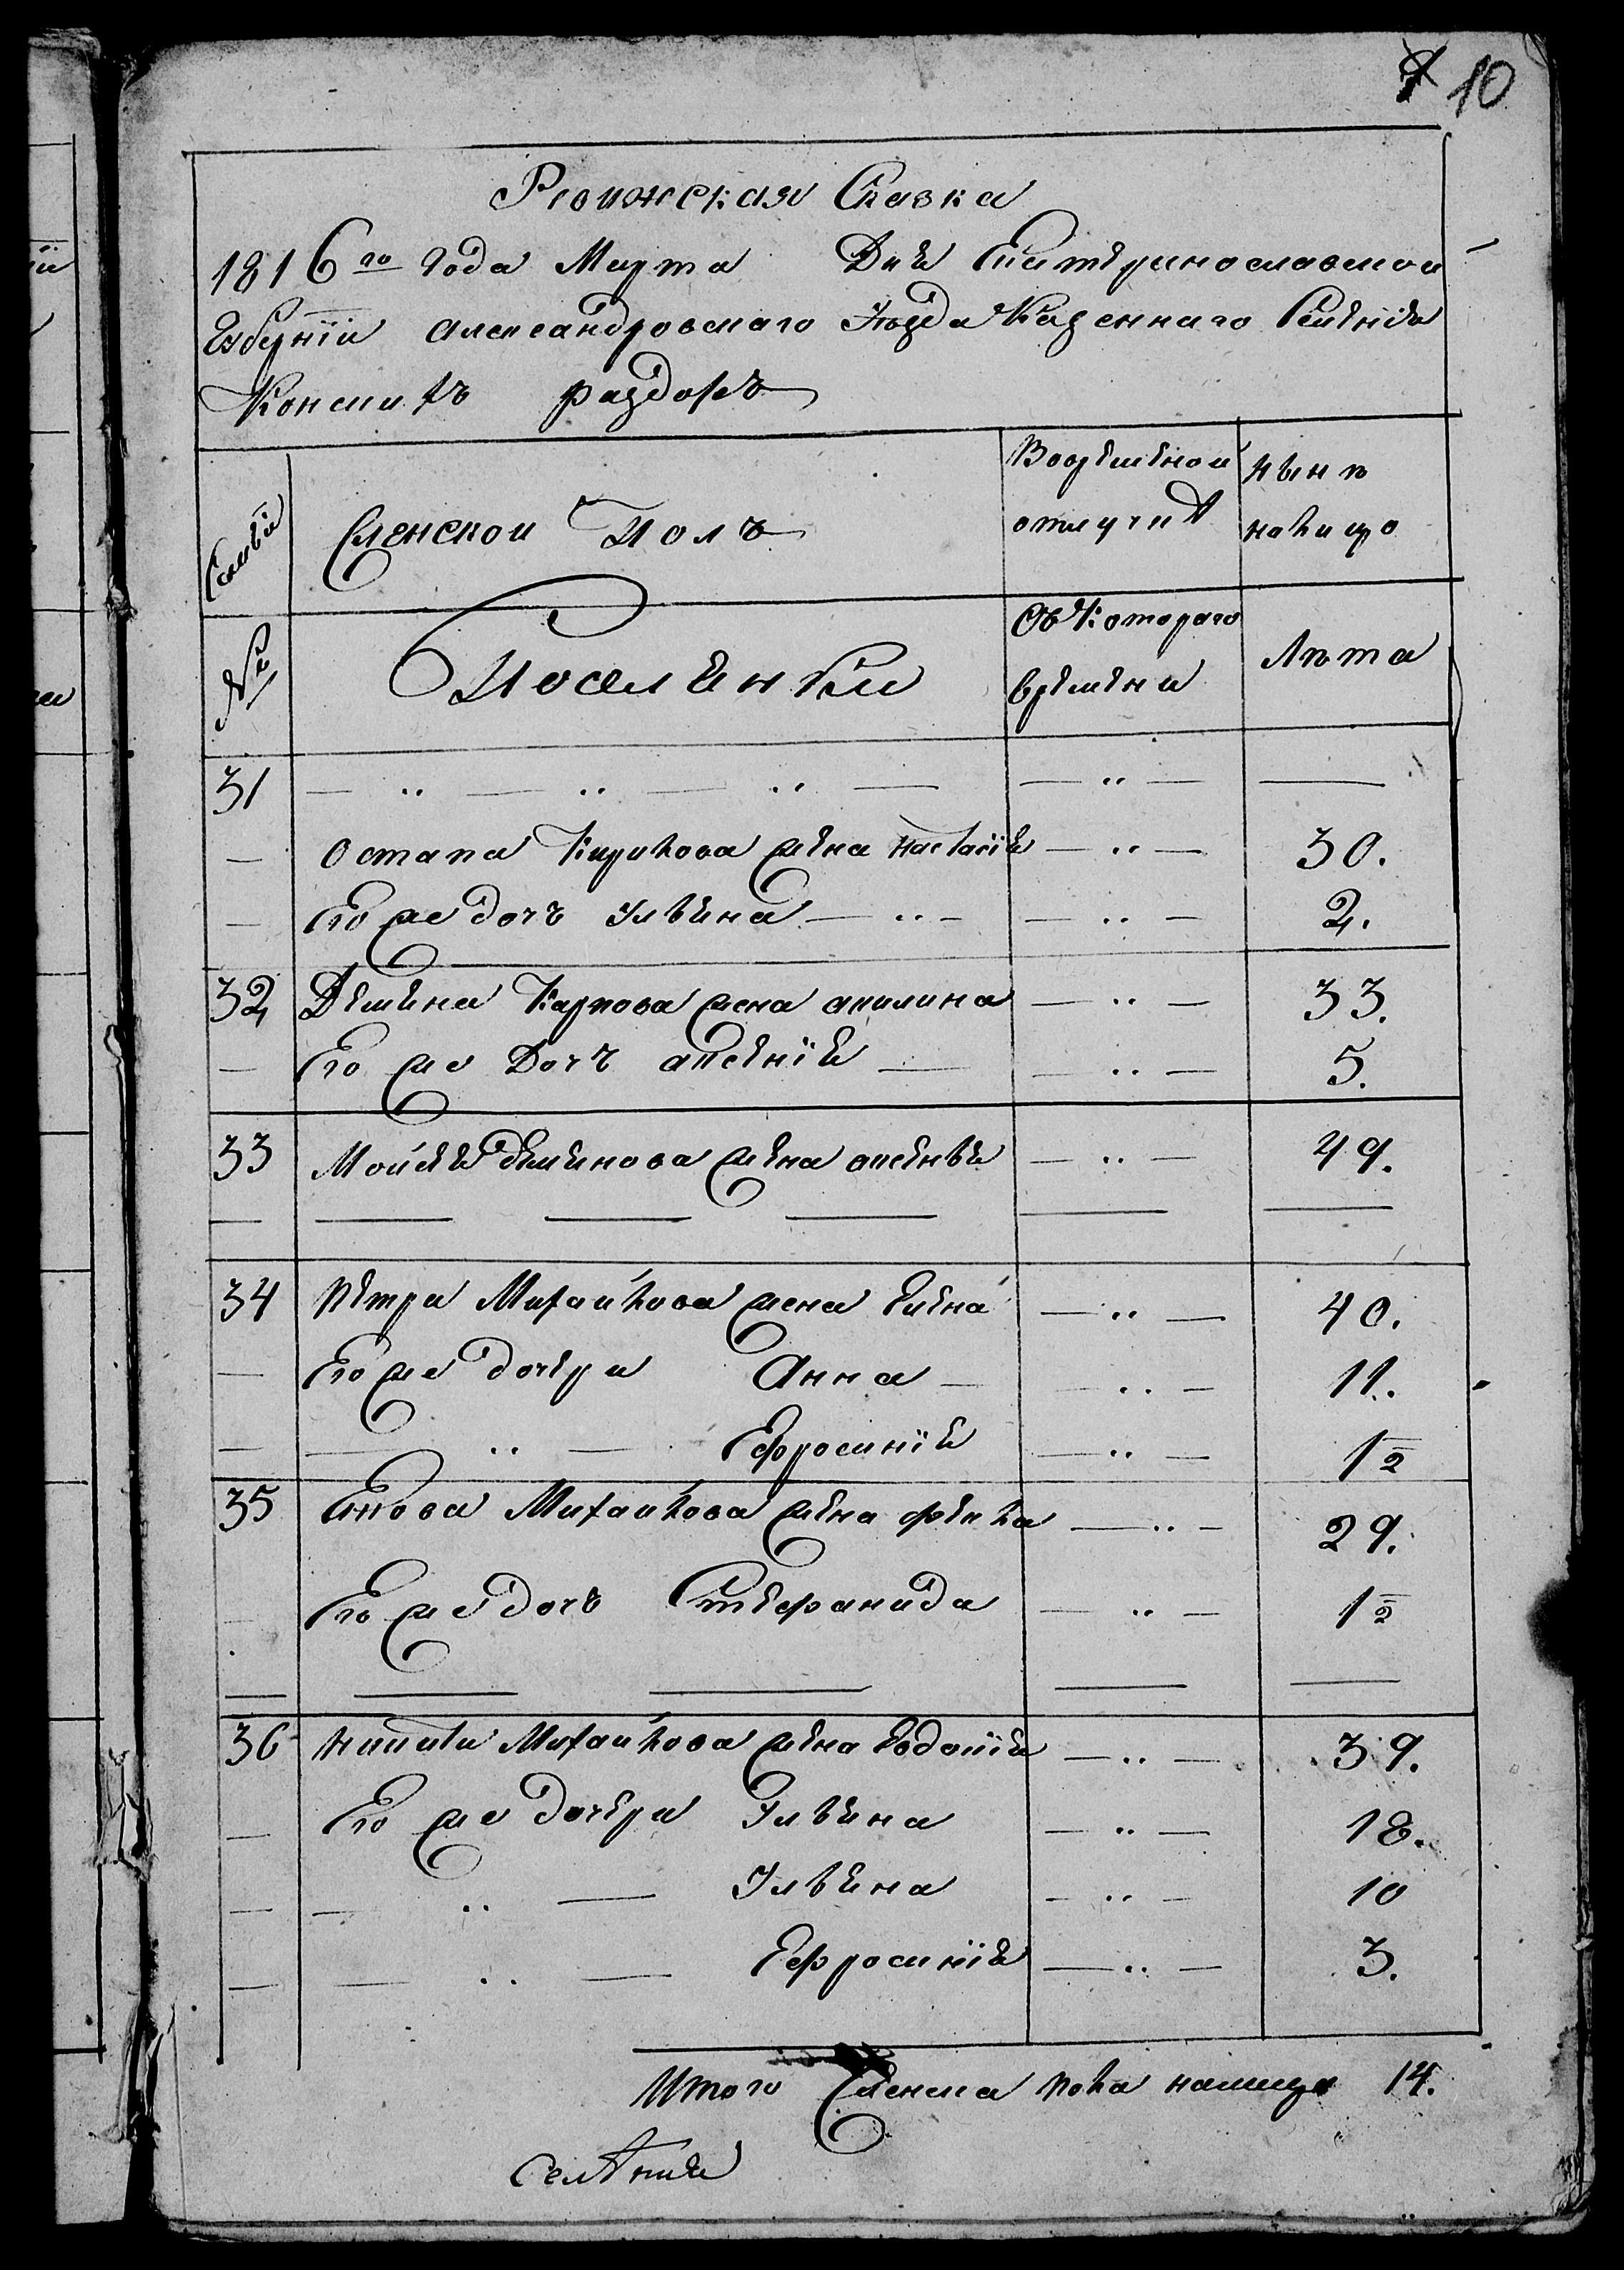 10
Ревижская Сказка
1816го года Марта Дня Екатеринославской
Губернїи Александровскаго Уѣзда Казеннаго Селенія
Конскихъ раздоръ
Семьи
Женской Полъ
Вовременной отлучкѣ
нынѣ налицо
№
Поселянки
Съ Котораго времени
Лѣта
31 — „ — „ — „ — — „ — —
— Остапа Кирилова жена Настасія — „ — 30.
— Его же дочъ Ульяна — „ — — „ — 2.
32 Демяна Карпова жена акилина — „ — 33.
— Его же Дочъ аксенія — — „ — 5.
33 Мойсея демянова жена аксенья — „ — 49.
34 Петра Михайлова жена Елена — „ — 40.
— Его же дочери Анна — — „ — 11.
— — „ — Ефросинія — „ — 1 1/2
35 Михайлова жена фекла — „ — 29.
— Его же дочъ Стефанида — „ — 1 1/2
36 Никиты Михайлова жена Евдокія — „ — 39.
— Его же дочери Ульяна — „ — 18.
— — „ — Ульяна — „ — 10
— — „ — Ефросинія — „ — 3.
Итого Женска пола налицо 14.
Селѣния